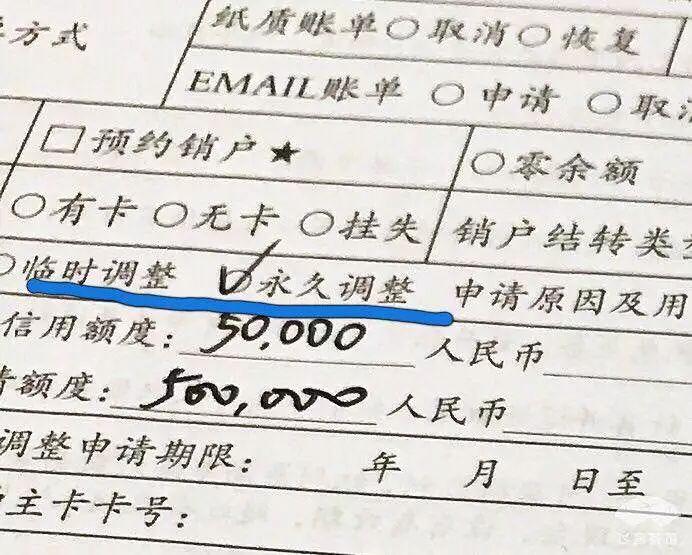 方式
纸质账单○取消○恢复
EMAIL账单 ○申请 ○取消
□预约销户★
○零余额
○有卡○无卡 ○挂失
销户结转类
○临时调整 ○永久调整 申请原因及用
信用额度: 50,000 人民币
额度: 500,000 人民币
调整申请期限: 年 月 日至
主卡卡号: